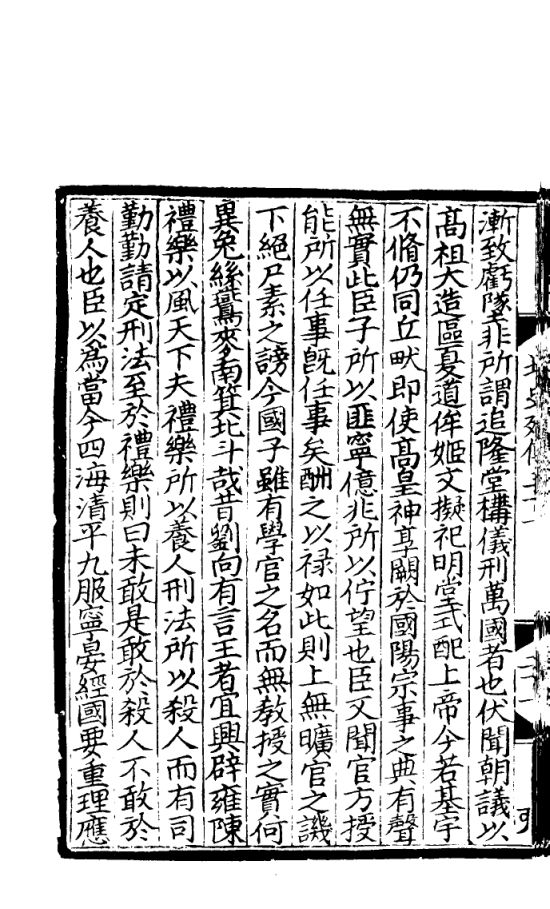 漸致虧墜非所謂追隆堂構儀刑萬國者也伏聞朝議以
高祖大造區夏道侔姬文擬祀明堂式配上帝今若基宇
不脩仍同丘畎即使高皇神享闕於國陽宗事之典有聲
無實此臣子所以匪寧億兆所以佇望也臣又聞官方授
能所以任事旣任事矣酬之以禄如此則上無曠官之譏
下絕尸素之謗今國子雖有學官之名而無教授之實何
異兔絲鷰麥南箕北斗哉昔劉向有言王者宜興辟雍陳
禮樂以風天下夫禮樂所以養人刑法所以殺人而有司
勤勤請定刑法至於禮樂則曰未敢是敢於殺人不敢於
養人也臣以為當今四海清平九服寧晏經國要重理應